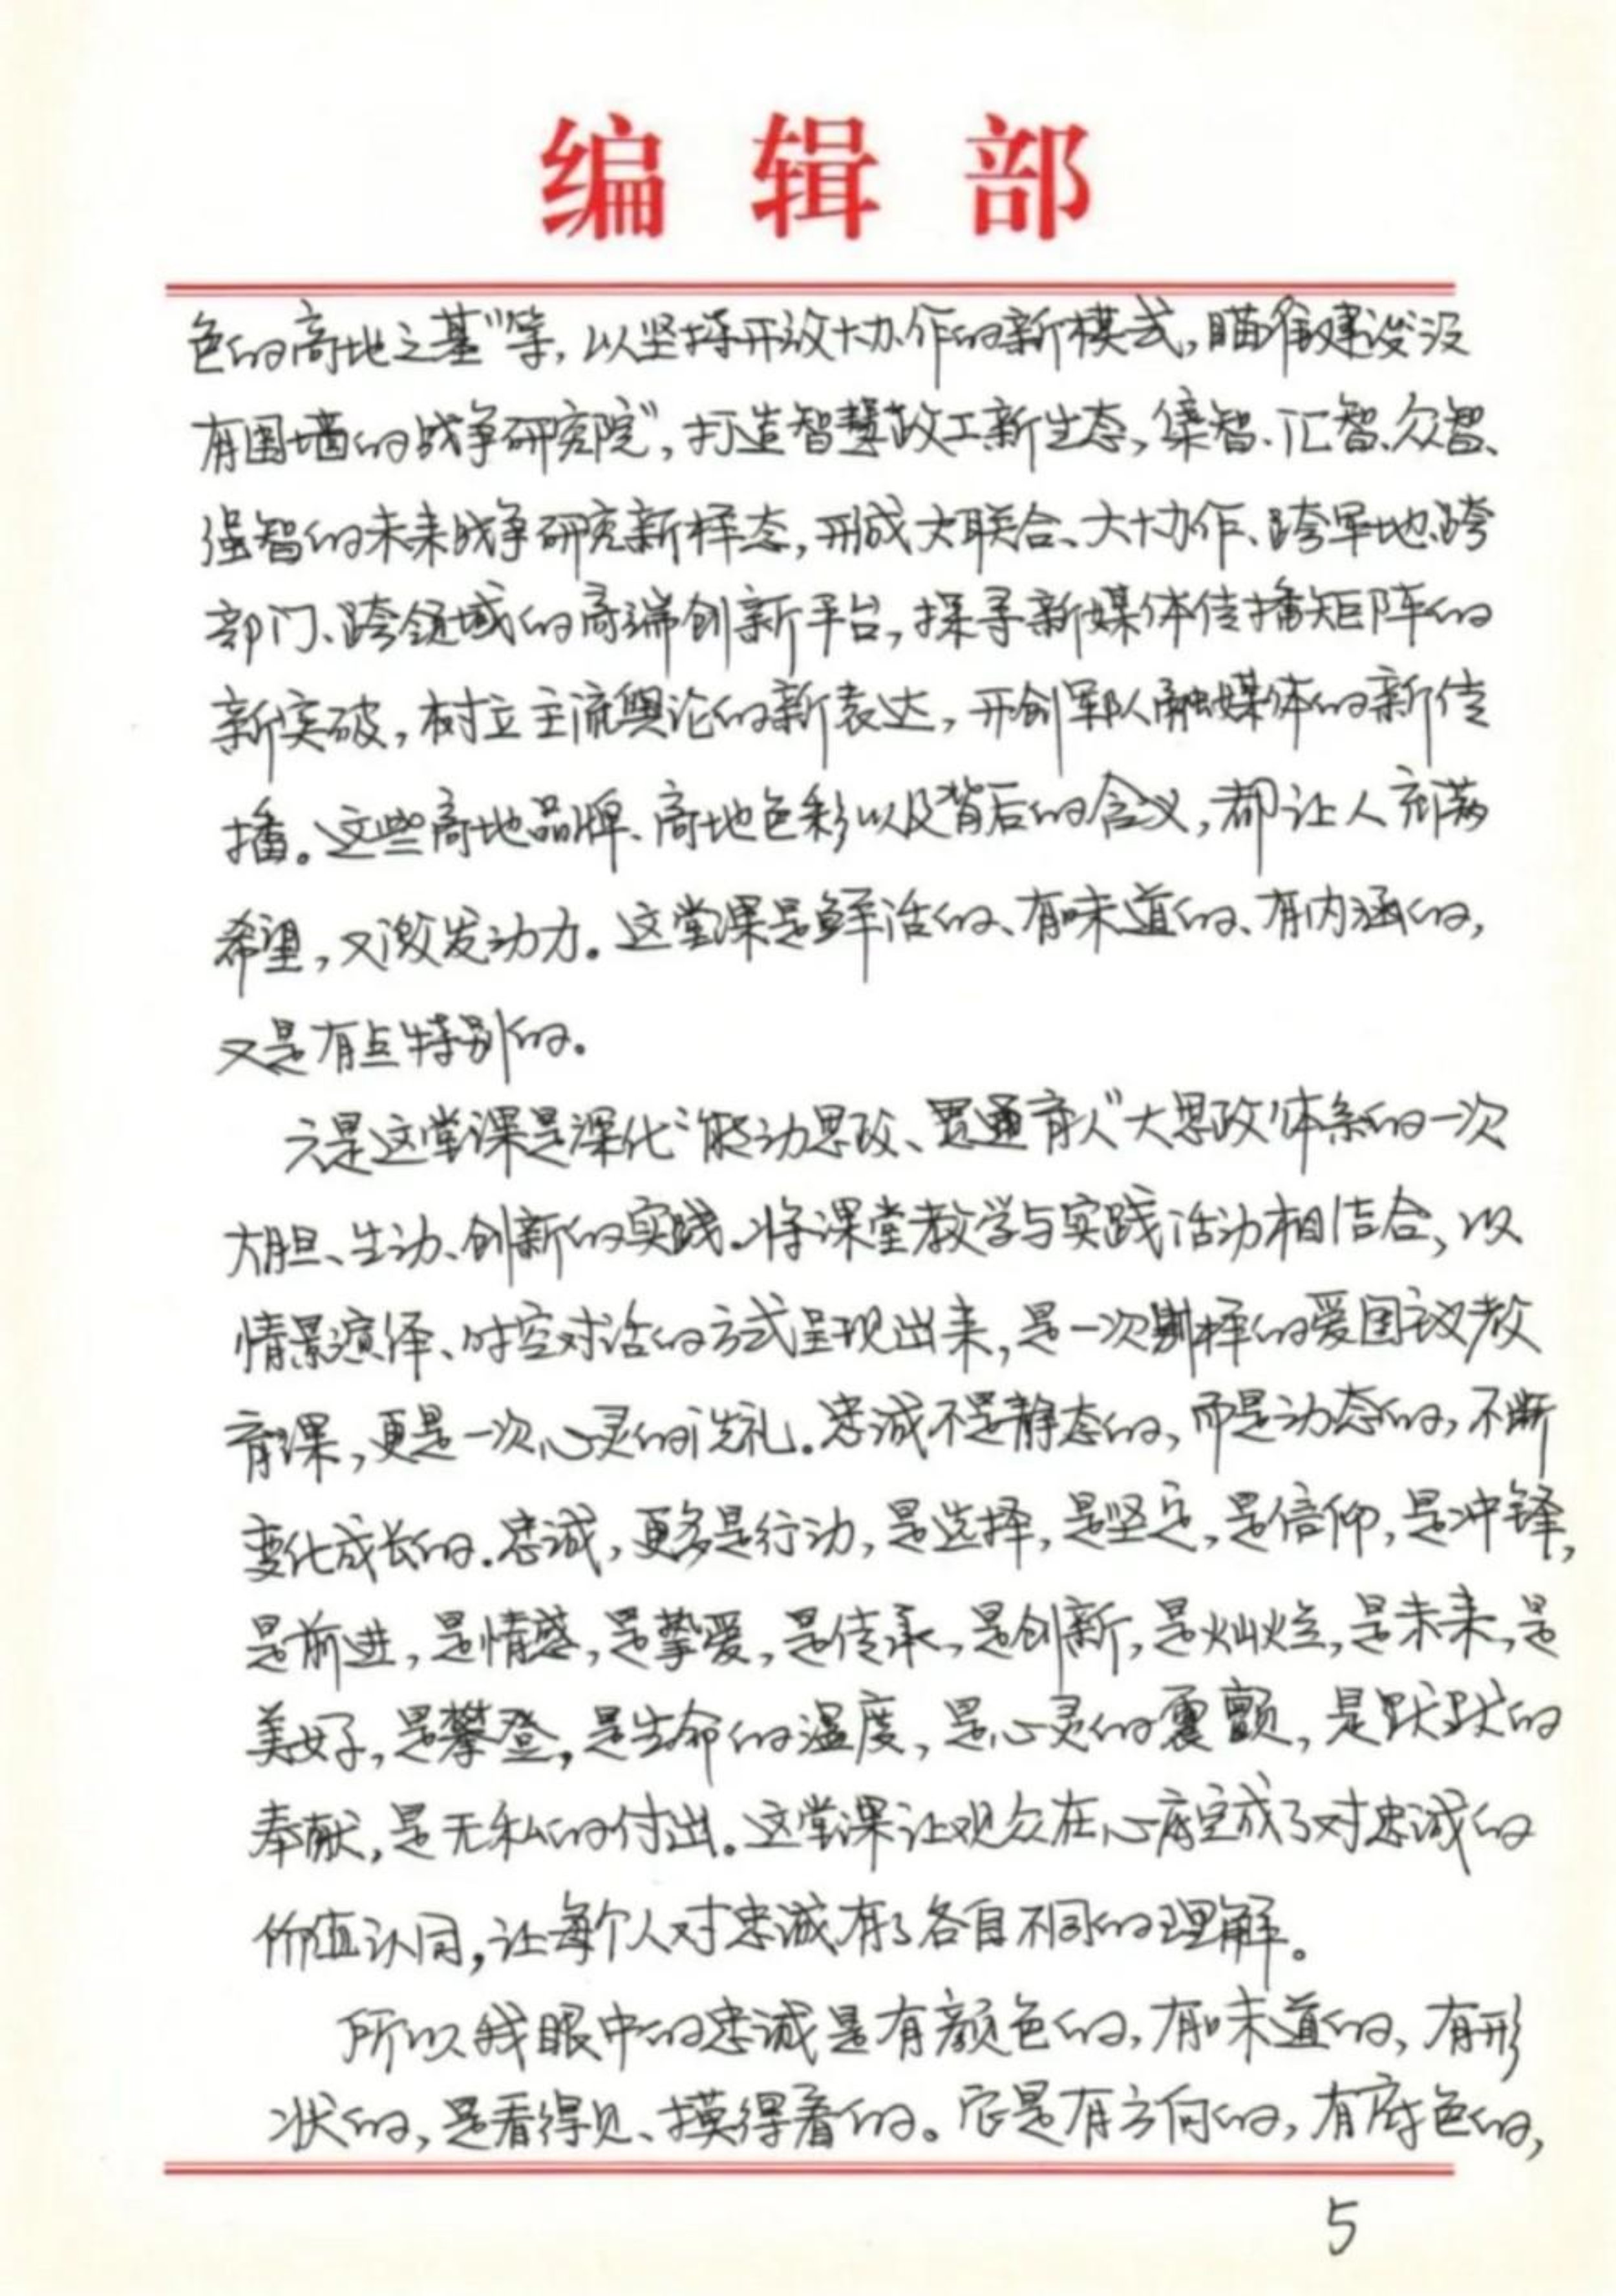 编辑部
色的高地之基”等，以坚持开放大协作的新模式，瞄准建设没
有围墙的战争研究院”，打造智慧政工新生态，集智、汇智、众智、
强智的未来战争研究新样态，形成大联合、大协作、跨军地、跨
部门、跨领域的高端创新平台，探寻新媒体传播矩阵的
新突破，树立主流舆论的新表达，开创军队融媒体的新传
播。这些高地品牌、高地色彩以及背后的含义，都让人充满
希望，又激发动力。这堂课是鲜活的、有味道的、有内涵的，
又是有点特别的。
六是这堂课是深化“能动思政、贯通育人”大思政体系的一次
大胆、生动、创新的实践。将课堂教学与实践活动相结合，以
情景演绎、时空对话的方式呈现出来，是一次别样的爱国主义教
育课，更是一次心灵的洗礼。忠诚不是静态的，而是动态的，不断
变化成长的。忠诚，更多是行动，是选择，是坚定，是信仰，是冲锋，
是前进，是情感，是挚爱，是传承，是创新，是灿烂，是未来，是
美好，是攀登，是生命的温度，是心灵的震颤，是默默的
奉献，是无私的付出。这堂课让观众在心底完成了对忠诚的
价值认同，让每个人对忠诚有了各自不同的理解。
所以我眼中的忠诚是有颜色的，有味道的，有形
状的，是看得见、摸得着的。它是有方向的，有底色的，
5